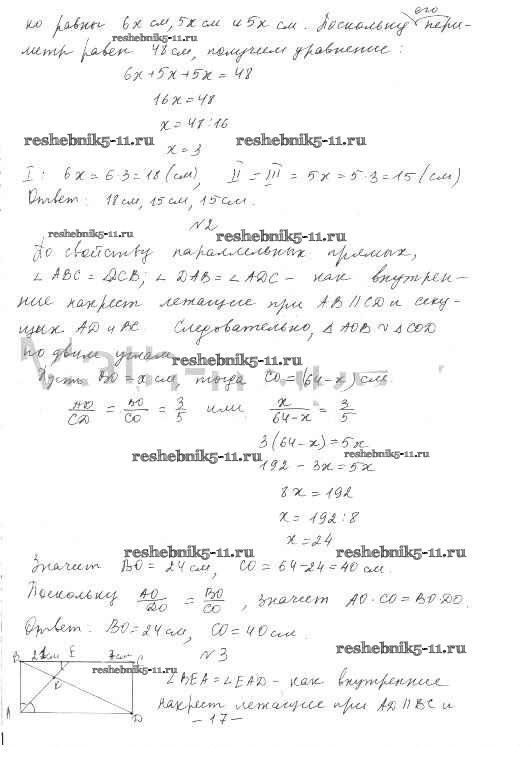 но равны 6x см, 5x см и 5x см. Поскольку его пери-
reshebnik5-11.ru
метр равен 48 см, получим уравнение:
6x+5x+5x=48
16x=48
x=48:16
reshebnik5-11.ru reshebnik5-11.ru
x=3
I: 6x=6·3=18(см), II=III=5x=5·3=15(см)
Ответ: 18см, 15см, 15см.
№2
reshebnik5-11.ru reshebnik5-11.ru
По свойству параллельных прямых,
∠ABC=∠DCB; ∠DAB=∠ADC - как внутрен-
ние накрест лежащие при AB||CD и секу-
щих AD и BC. Следовательно, △AOB ∾ △COD
по двум углам.
reshebnik5-11.ru
Пусть BO=x см, тогда CO=(64-x) см.
AO/CD = BO/CO = 3/5 или x/64-x = 3/5
3(64-x)=5x
reshebnik5-11.ru reshebnik5-11.ru
192-3x=5x
8x=192
x=192:8
x=24
reshebnik5-11.ru reshebnik5-11.ru
Значит BO=24см, CO=64-24=40см.
Поскольку AO/DO = BO/CO, значит AO·CO=BO·DO.
Ответ: BO=24см, CO=40см.
№3
reshebnik5-11.ru
B 21см E 7см C
reshebnik5-11.ru
∠BEA=∠EAD - как внутренние
накрест лежащие при AD||BC и
A D
-17-